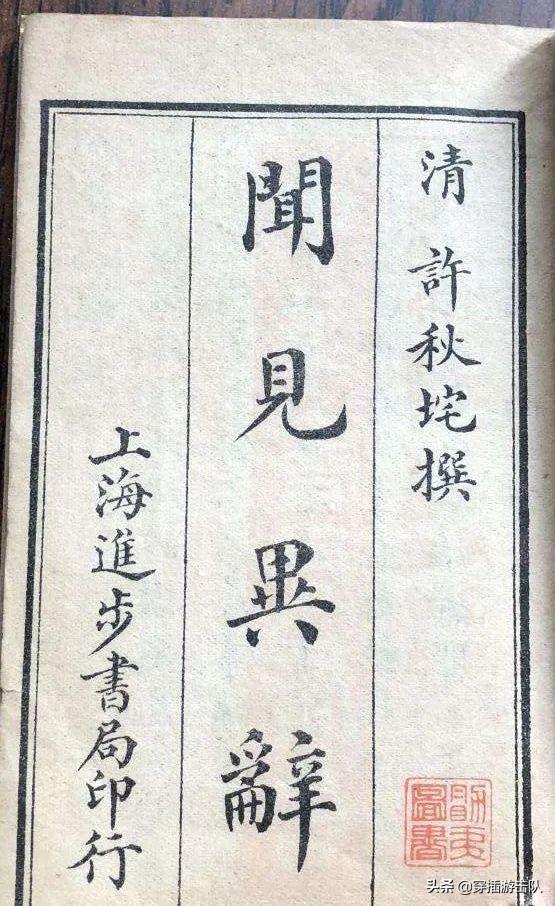 清 許秋垞撰
聞見異辭
上海進步書局印行
圖書
頭条 @穿插游击队